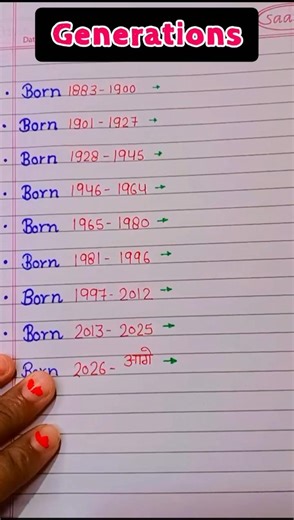 Generations
saa
Dat
Born 1883-1900 →
Born 1901-1927 →
Born 1928-1945 →
Born 1946-1964 →
Born 1965-1980 →
Born 1981-1996 →
Born 1997-2012 →
Born 2013-2025 →
Born 2026- आगे →